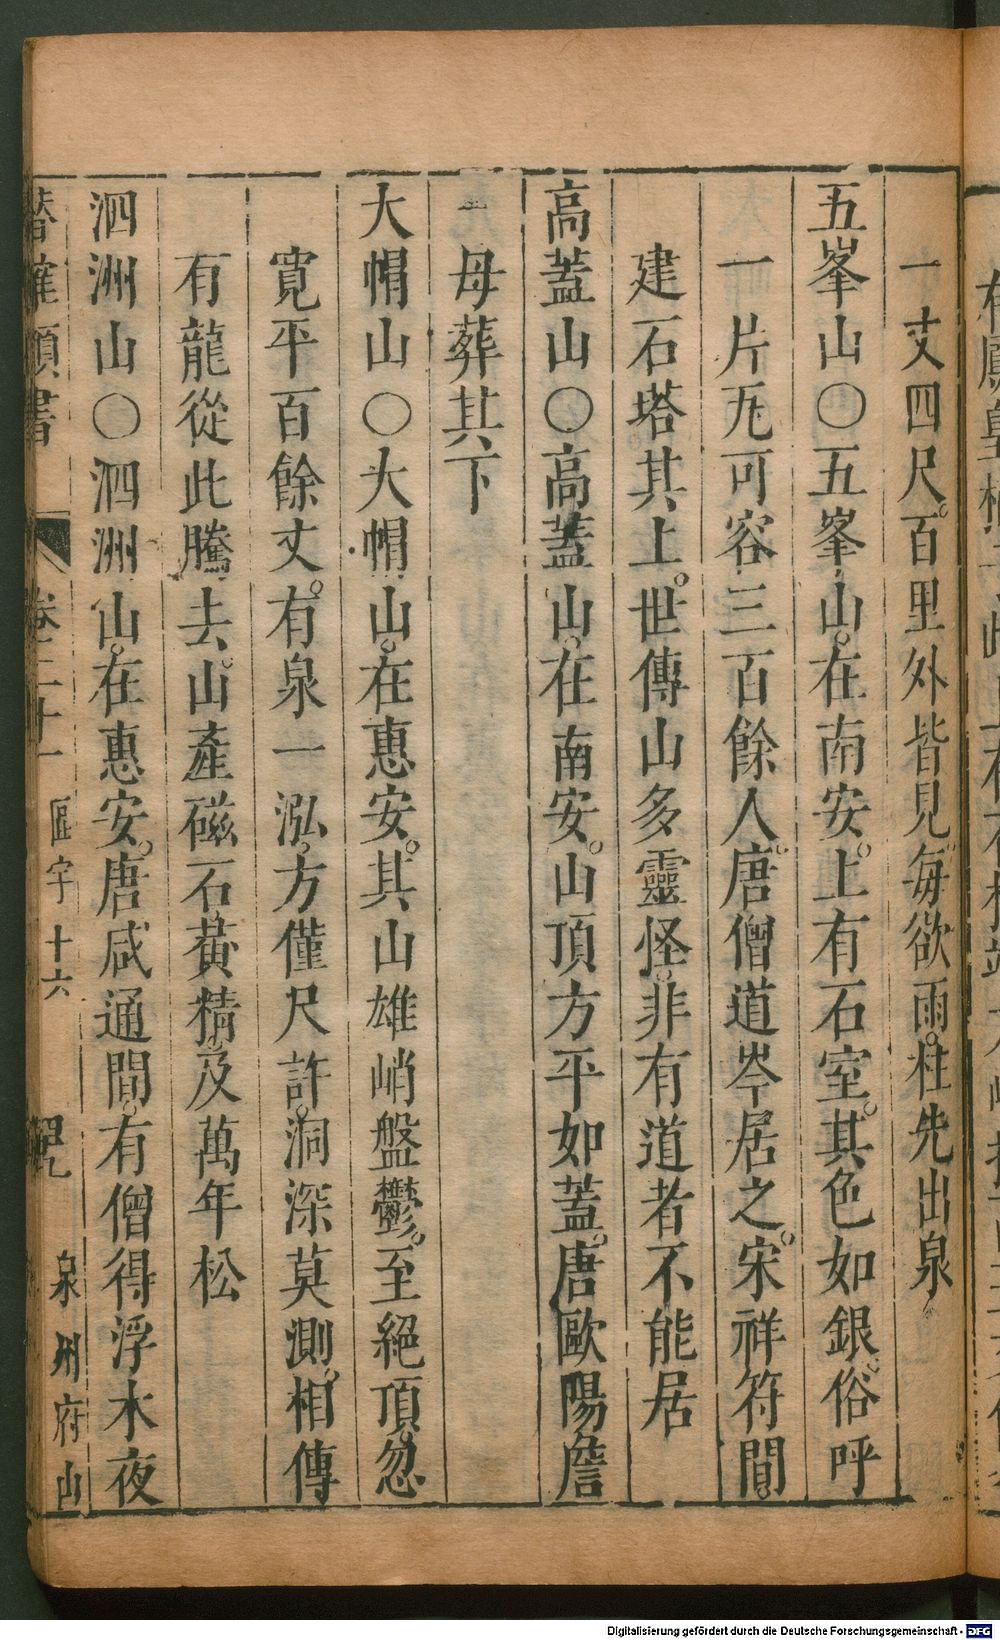 一丈四尺。百里外皆見。每欲雨。柱先出泉
五峯山○五峯山。在南安。上有石室。其色如銀。俗呼
一片瓦。可容三百餘人。唐僧道岑居之。宋祥符間。
建石塔其上。世傳山多靈怪。非有道者不能居
高蓋山○高蓋山。在南安。山頂方平如蓋。唐歐陽詹
母葬其下
大帽山○大帽山。在惠安。其山雄峭盤鬱。至絕頂。忽
寬平百餘丈。有泉一泓。方僅尺許。洞深莫測。相傳
有龍從此騰去。山產磁石黃精。及萬年松
泗洲山○泗洲山。在惠安。唐咸通間。有僧得浮木夜
潛確類書 卷三十一 區宇十六 泉州府山
Digitalisierung gefördert durch die Deutsche Forschungsgemeinschaft - DFG